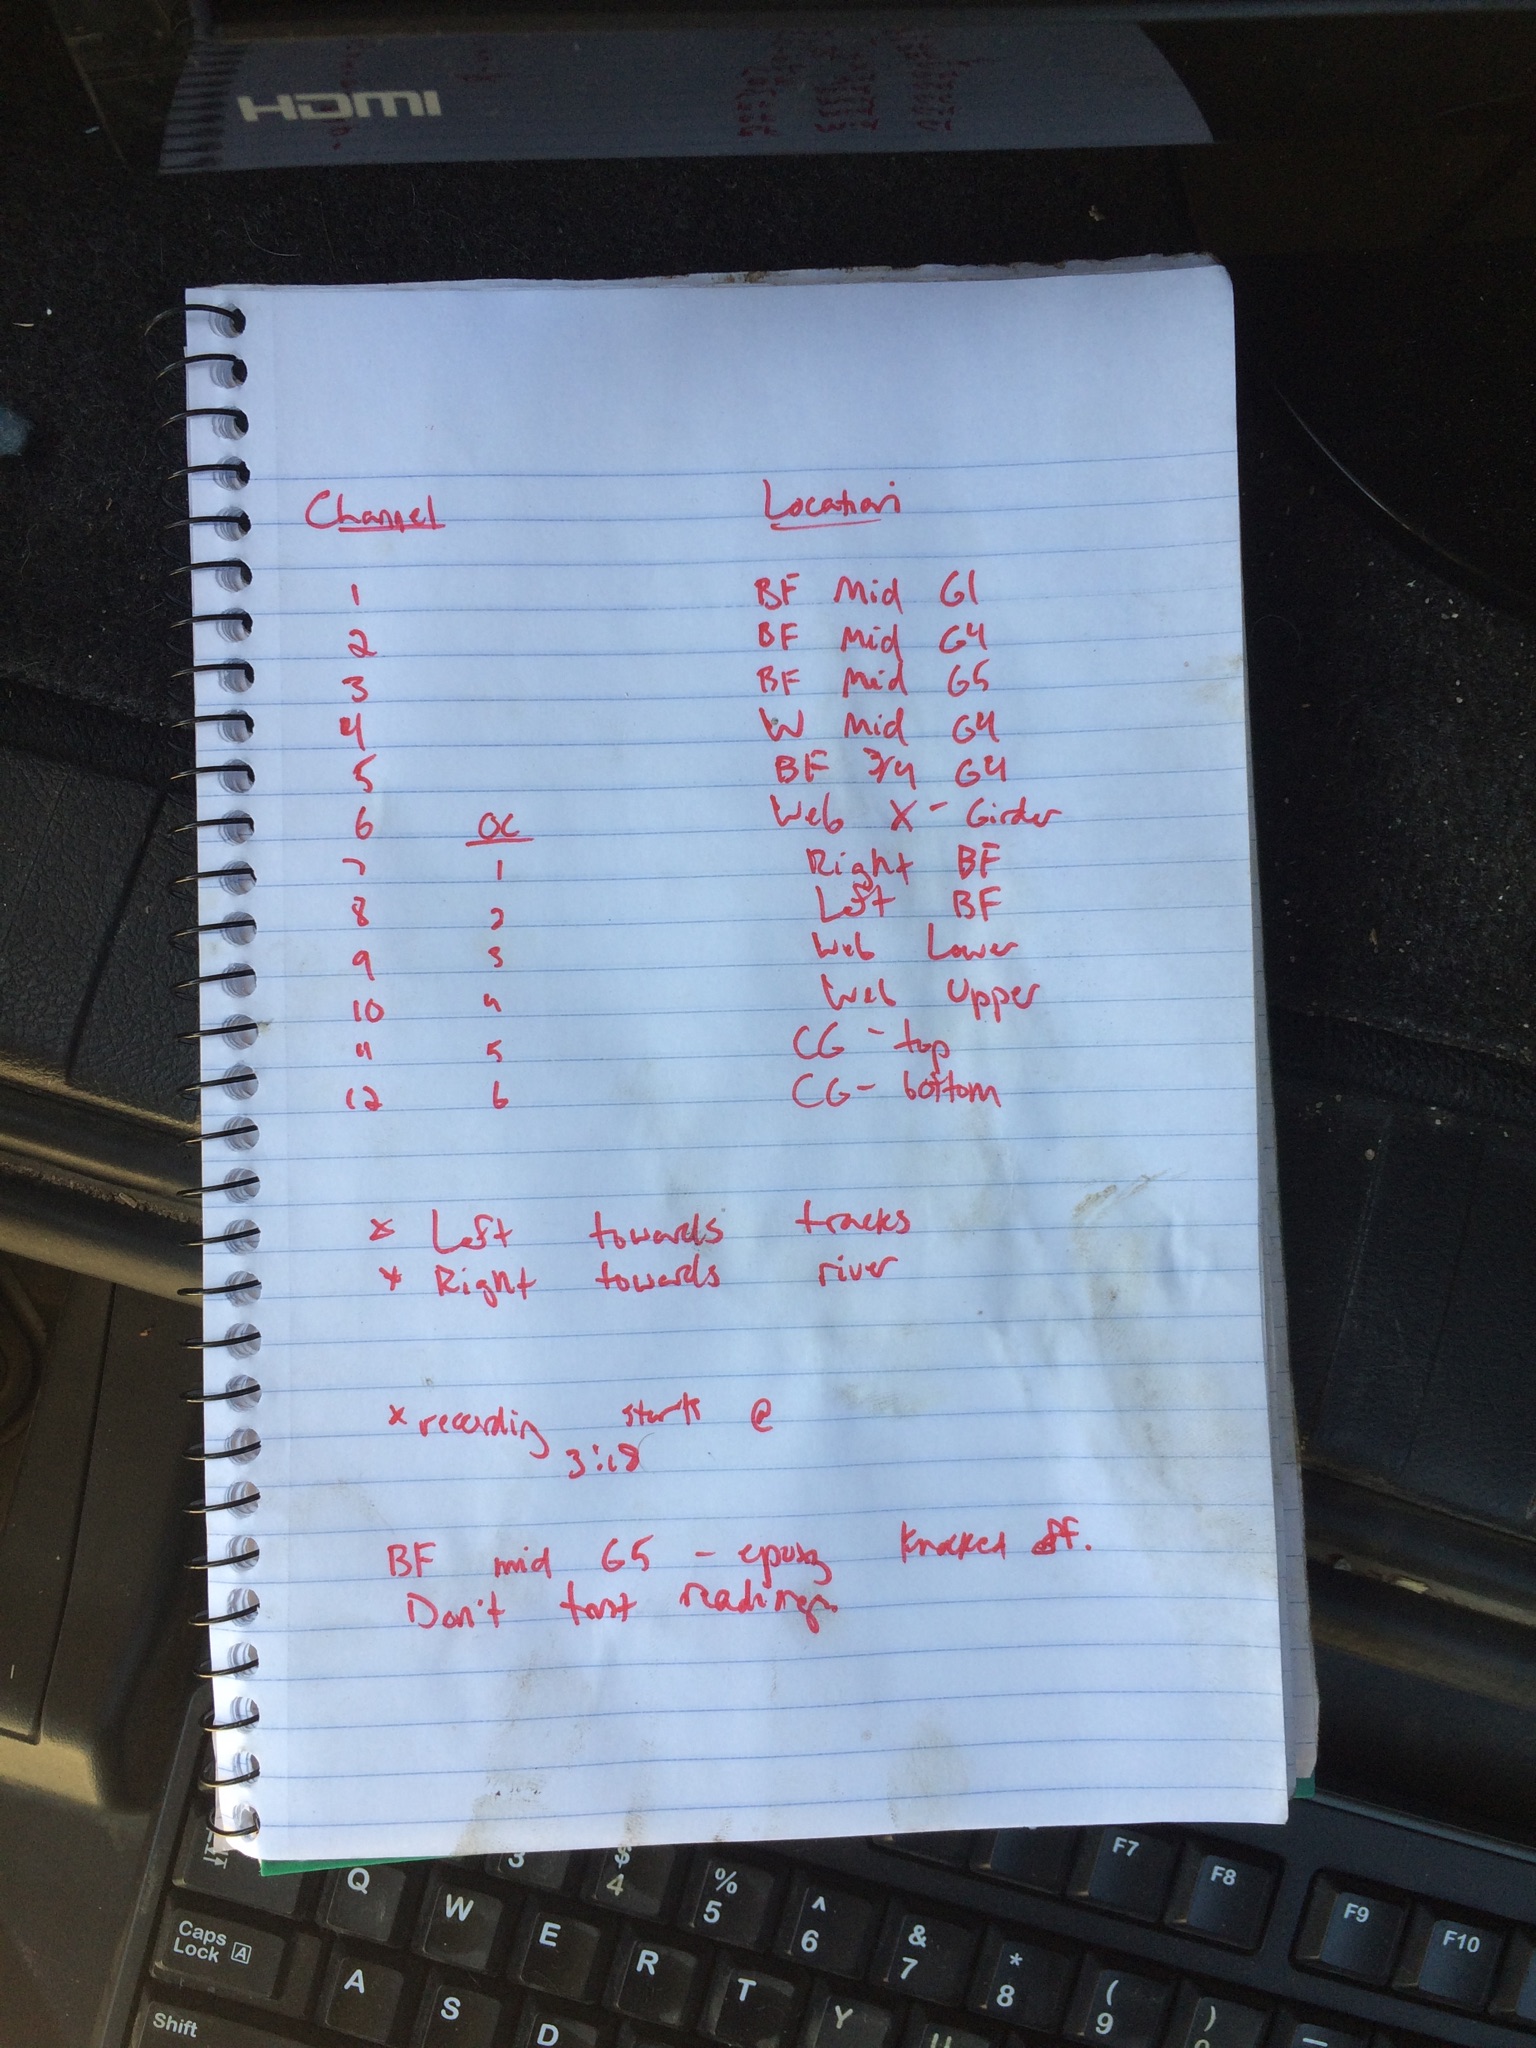 HDMI
Channel Location
1 BF Mid G1
2 BF Mid G4
3 BF Mid G5
4 W Mid G4
5 BF 3/4 G4
6 OC Web X-Girder
7 1 Right BF
8 2 Left BF
9 3 Web Lower
10 4 Web Upper
11 5 CG - top
12 6 CG - bottom
* Left towards tracks
* Right towards river
* recording starts @
3:18
BF mid G5 - epoxy knocked off.
Don't trust readings.
3 $ 4 % 5 ^ 6 & 7 * 8 ( 9 )
F7 F8 F9 F10
Q W E R T Y U
Caps Lock A
A S D
Shift